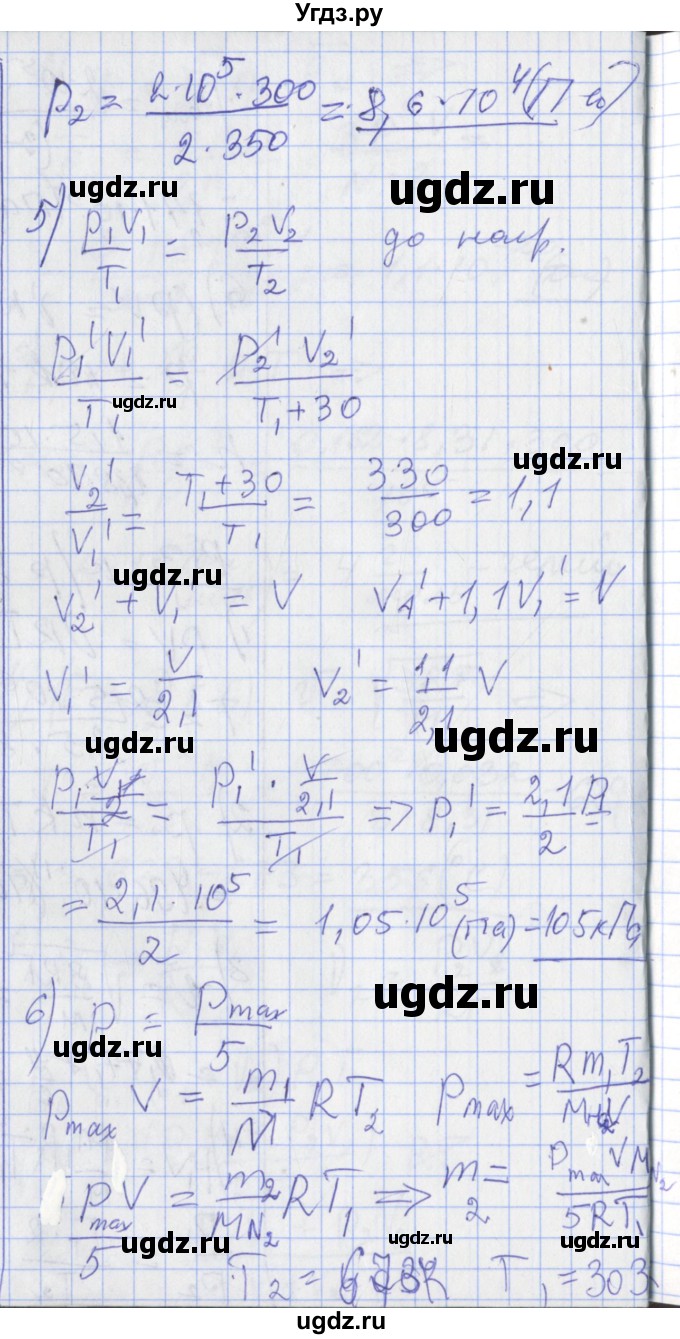 Угдз.ру
p₂ = 2·10⁵·300 / 2·350 = 8,6·10⁴(Па)
ugdz.ru ugdz.ru
5) p₁V₁ / T₁ = p₂V₂ / T₂ до нагр.
p₁'V₁' / T₁ = p₂'V₂' / T₁+30
ugdz.ru
ugdz.ru
V₂' / V₁' = T₁+30 / T₁ = 330 / 300 = 1,1
ugdz.ru
V₂' + V₁' = V V₁' + 1,1V₁' = V
V₁' = V / 2,1 V₂' = 1,1 / 2,1 V
ugdz.ru ugdz.ru
p₁·V/2 / T₁ = p₁'·V/2,1 / T₁ => p₁' = 2,1 p₁ / 2 =
= 2,1·10⁵ / 2 = 1,05·10⁵(Па) = 105кПа
ugdz.ru
6) p = pmax / 5
ugdz.ru
pmax V = m₁ / M RT₂ pmax = Rm₁T₂ / MN₂V
pmax V / 5 = m₂ / MN₂ RT₁ => m₂ = pmax V MN₂ / 5RT₁
ugdz.ru ugdz.ru
T₂ = T₁ = 303
ugdz.ru